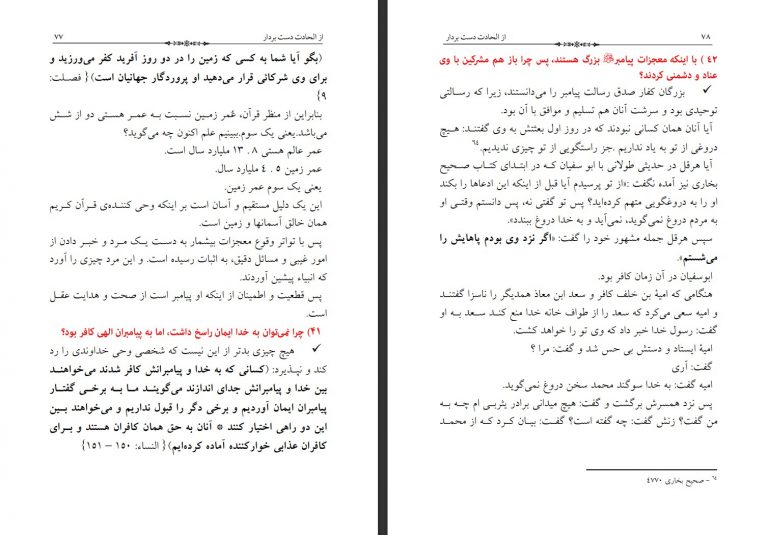 از الحادت دست بردار ۷۷
(بگو آیا شما به کسی که زمین را در دو روز آفرید کفر می‌ورزید و
برای وی شرکائی قرار می‌دهید او پروردگار جهانیان است) { فصلت:
۹}
بنابراین از منظر قرآن، عُمر زمین نسبت به عمر هستی دو از شش
می‌باشد.یعنی یک سوم.ببینیم علم اکنون چه می‌گوید؟
عمر عالم هستی ۸ . ۱۳ ملیارد سال است.
عمر زمین ۵ . ۴ ملیارد سال.
یعنی یک سوم عمر زمین.
این یک دلیل مستقیم و آسان است بر اینکه وحی کننده‌ی قرآن کریم
همان خالق آسمانها و زمین است.
پس با تواتر وقوع معجزات بیشمار به دست یک مرد و خبر دادن از
امور غیبی و مسائل دقیق، به اثبات رسیده است. و این مرد چیزی را آورد
که انبیاء پیشین آوردند.
پس قطعیت و اطمینان از اینکه او پیامبر است از صحت و هدایت عقل
است.
۴۱) چرا نمی‌توان به خدا ایمان راسخ داشت، اما به پیامبران الهی کافر بود؟
✓ هیچ چیزی بدتر از این نیست که شخصی وحی خداوندی را رد
کند و نپذیرد: (کسانی که به خدا و پیامبرانش کافر شدند می‌خواهند
بین خدا و پیامبرانش جدای اندازند می‌گویند ما به برخی گفتار
پیامبران ایمان آوردیم و برخی دگر را قبول نداریم و می‌خواهند بین
این دو راهی اختیار کنند * آنان به حق همان کافران هستند و برای
کافران عذابی خوارکننده آماده کرده‌ایم) { النساء: ۱۵۰ – ۱۵۱}
۷۸ از الحادت دست بردار
۴۲ ) با اینکه معجزات پیامبرﷺ بزرگ هستند، پس چرا باز هم مشرکین با وی
عناد و دشمنی کردند؟
✓ بزرگان کفار صدق رسالت پیامبر را می‌دانستند، زیرا که رسالتی
توحیدی بود و سرشت آنان هم تسلیم و موافق با آن بود.
آیا آنان همان کسانی نبودند که در روز اول بعثتش به وی گفتند: هیچ
دروغی از تو به یاد نداریم .جز راستگویی از تو چیزی ندیدیم.۶۴
آیا هرقل در حدیثی طولانی با ابو سفیان که در ابتدای کتاب صحیح
بخاری نیز آمده نگفت :«از تو پرسیدم آیا قبل از اینکه این ادعاها را بکند
او را به دروغگویی متهم کرده‌اید؟ پس تو گفتی نه، پس دانستم وقتی او
به مردم دروغ نمی‌گوید، نمی‌آید و به خدا دروغ ببندد».
سپس هرقل جمله مشهور خود را گفت: «اگر نزد وی بودم پاهایش را
می‌شستم».
ابوسفیان در آن زمان کافر بود.
هنگامی که امیة بن خلف کافر و سعد ابن معاذ همدیگر را ناسزا گفتند
و امیه سعی می‌کرد که سعد را از طواف خانه خدا منع کند سعد به او
گفت: رسول خدا خبر داد که وی تو را خواهد کشت.
امیة ایستاد و دستش بی حس شد و گفت: مرا ؟
گفت: آری
امیه گفت: به خدا سوگند محمد سخن دروغ نمی‌گوید.
پس نزد همسرش برگشت و گفت: هیچ میدانی برادر یثربی ام چه به
من گفت؟ زنش گفت: چه گفته است؟ گفت: بیان کرد که از محمد
۶۴ - صحیح بخاری ۴۷۷۰